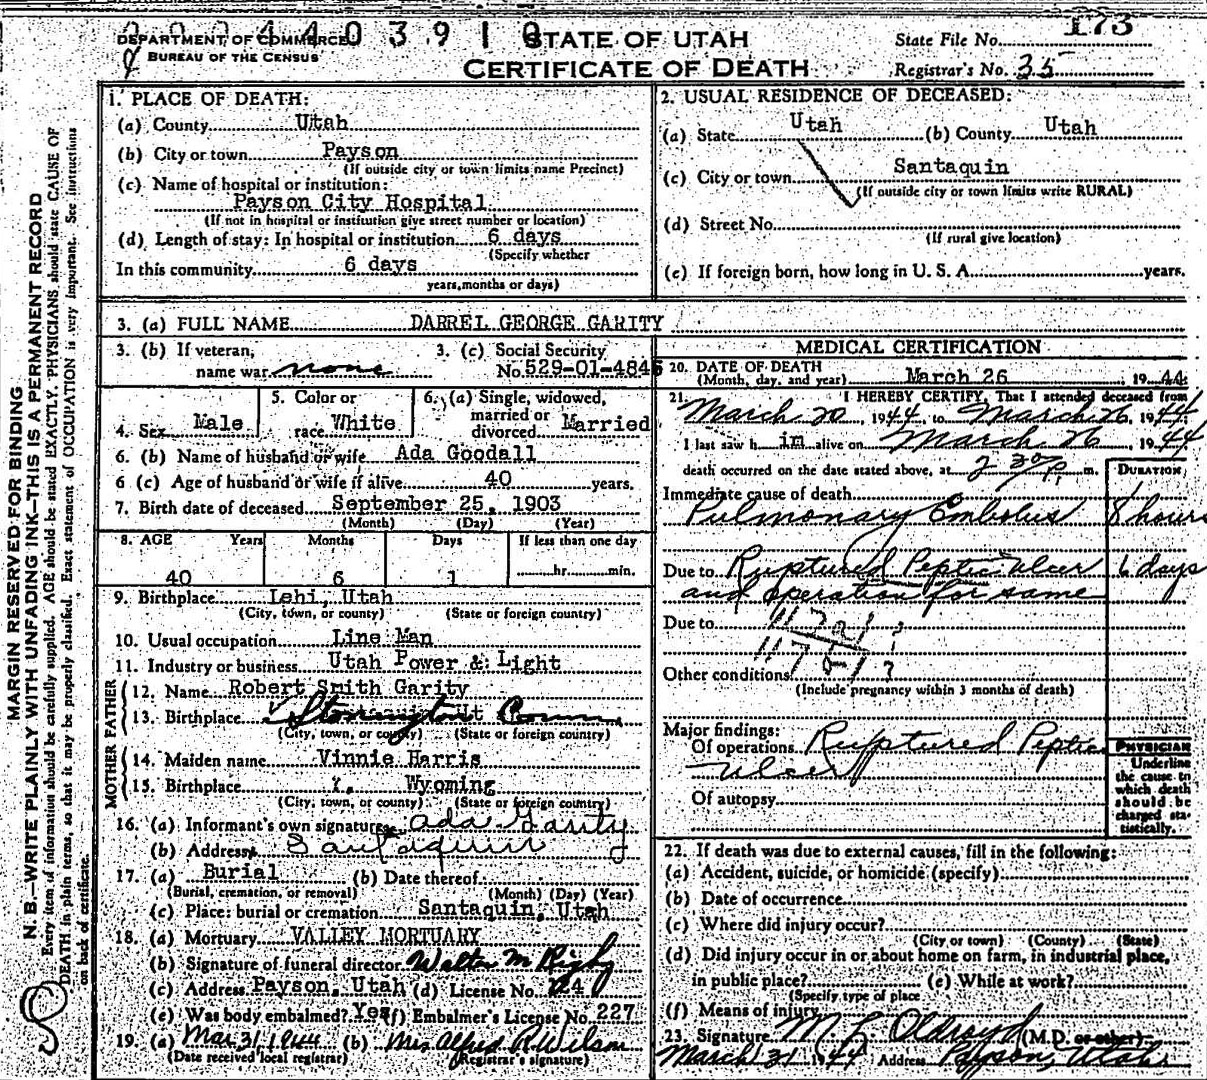 DEPARTMENT OF COMMERCE
BUREAU OF THE CENSUS
STATE OF UTAH
CERTIFICATE OF DEATH
State File No. 173
Registrar's No. 35
MARGIN RESERVED FOR BINDING
N. B.—WRITE PLAINLY WITH UNFADING INK—THIS IS A PERMANENT RECORD
Every item of information should be carefully supplied. AGE should be stated EXACTLY. PHYSICIANS should state CAUSE OF
DEATH in plain terms, so that it may be properly classified. Exact statement of OCCUPATION is very important. See instructions
on back of certificate.
1. PLACE OF DEATH:
(a) County Utah
(b) City or town Payson
(If outside city or town limits name Precinct)
(c) Name of hospital or institution:
Payson City Hospital
(If not in hospital or institution give street number or location)
(d) Length of stay: In hospital or institution 6 days
(Specify whether
In this community 6 days
years, months or days)
2. USUAL RESIDENCE OF DECEASED:
(a) State Utah (b) County Utah
(c) City or town Santaquin
(If outside city or town limits write RURAL)
(d) Street No.
(If rural give location)
(e) If foreign born, how long in U. S. A. years.
3. (a) FULL NAME DARREL GEORGE GARITY
3. (b) If veteran, name war none
3. (c) Social Security No. 529-01-4845
4. Sex Male
5. Color or race White
6. (a) Single, widowed, married or divorced Married
6. (b) Name of husband or wife Ada Goodall
6 (c) Age of husband or wife if alive 40 years.
7. Birth date of deceased September 25, 1903
(Month) (Day) (Year)
8. AGE Years Months Days If less than one day
40 6 1 hr. min.
9. Birthplace Lehi, Utah
(City, town, or county) (State or foreign country)
10. Usual occupation Line Man
11. Industry or business Utah Power & Light
FATHER
12. Name Robert Smith Garity
13. Birthplace Stonington Conn
(City, town, or county) (State or foreign country)
MOTHER
14. Maiden name Vinnie Harris
15. Birthplace ?. Wyoming
(City, town, or county) (State or foreign country)
16. (a) Informant's own signature Ada Garity
(b) Address Santaquin
17. (a) Burial (b) Date thereof
(Burial, cremation, or removal) (Month) (Day) (Year)
(c) Place: burial or cremation Santaquin, Utah
18. (a) Mortuary VALLEY MORTUARY
(b) Signature of funeral director Walter M Rigby
(c) Address Payson, Utah (d) License No. 224
(e) Was body embalmed? Yes (f) Embalmer's License No. 227
19. (a) Mar 31, 1944 (b) Mrs Alfred R. Wilson
(Date received local registrar) (Registrar's signature)
MEDICAL CERTIFICATION
20. DATE OF DEATH
(Month, day, and year) March 26 19 44
21. I HEREBY CERTIFY, That I attended deceased from
March 20, 1944, to March 26, 1944
I last saw h im alive on March 26 1944
death occurred on the date stated above, at 2 30 p m.
DURATION
Immediate cause of death
Pulmonary Embolus 8 hours
Due to Ruptured Peptic Ulcer 6 days
and operation for same
Due to
Other conditions
(Include pregnancy within 3 months of death)
Major findings:
Of operations Ruptured Peptic
Ulcer
Of autopsy
PHYSICIAN
Underline
the cause to
which death
should be
charged sta-
tistically.
22. If death was due to external causes, fill in the following:
(a) Accident, suicide, or homicide (specify)
(b) Date of occurrence
(c) Where did injury occur?
(City or town) (County) (State)
(d) Did injury occur in or about home on farm, in industrial place,
in public place? (e) While at work?
(Specify type of place
(f) Means of injury
23. Signature M L Oldroyd (M.D. or other)
March 31 1944 Address Payson, Utah